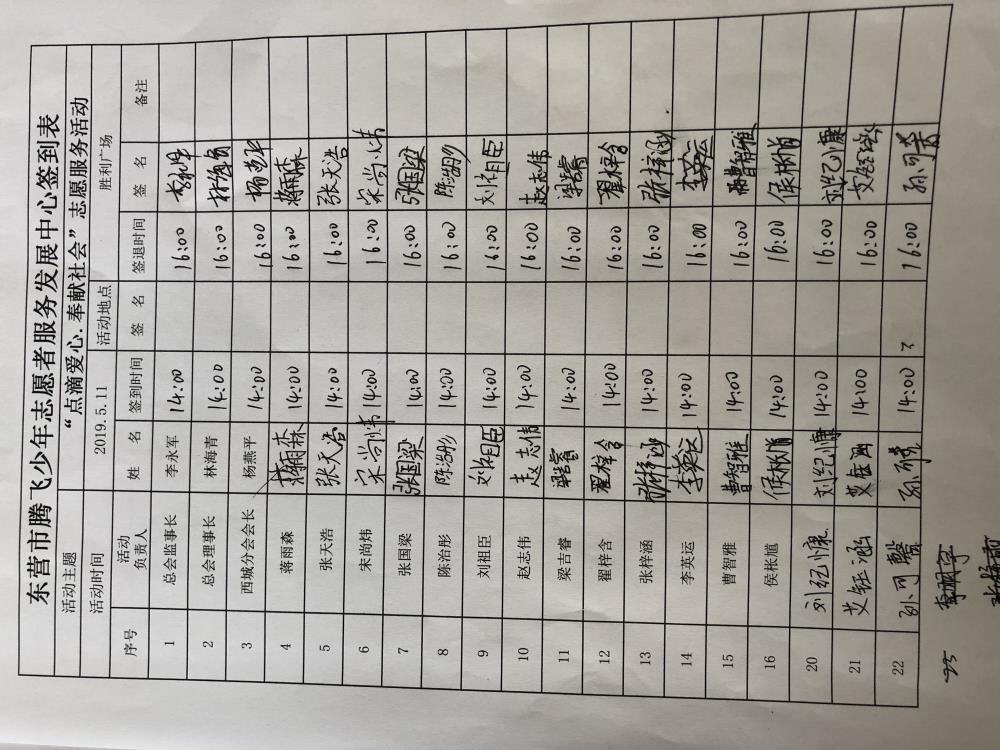 东营市腾飞少年志愿者服务发展中心签到表
活动主题 “点滴爱心.奉献社会”志愿服务活动
活动时间 2019.5.11 活动地点 胜利广场
序号 活动负责人 姓 名 签到时间 签 名 签退时间 签 名 备注
1 总会监事长 李永军 14:00 16:00 李永军
2 总会理事长 林海青 14:00 16:00 林海青
3 西城分会会长 杨燕平 14:00 16:00 杨燕平
4 蒋雨森 蒋雨森 14:00 16:00 蒋雨森
5 张天浩 张天浩 14:00 16:00 张天浩
6 宋尚炜 宋尚炜 14:00 16:00 宋尚炜
7 张国梁 张国梁 14:00 16:00 张国梁
8 陈治彤 陈治彤 14:00 16:00 陈治彤
9 刘祖臣 刘祖臣 14:00 16:00 刘祖臣
10 赵志伟 赵志伟 14:00 16:00 赵志伟
11 梁吉睿 梁吉睿 14:00 16:00 梁吉睿
12 翟梓含 翟梓含 14:00 16:00 翟梓含
13 张梓涵 张梓涵 14:00 16:00 张梓涵
14 李英运 李英运 14:00 16:00 李英运
15 曹智雅 曹智雅 14:00 16:00 曹智雅
16 侯枨馗 14:00 16:00
20 刘纪慷 刘纪慷 14:00 16:00 刘纪慷
21 艾钰涵 艾钰涵 14:00 16:00 艾钰涵
22 孙可馨 14:00 16:00
23